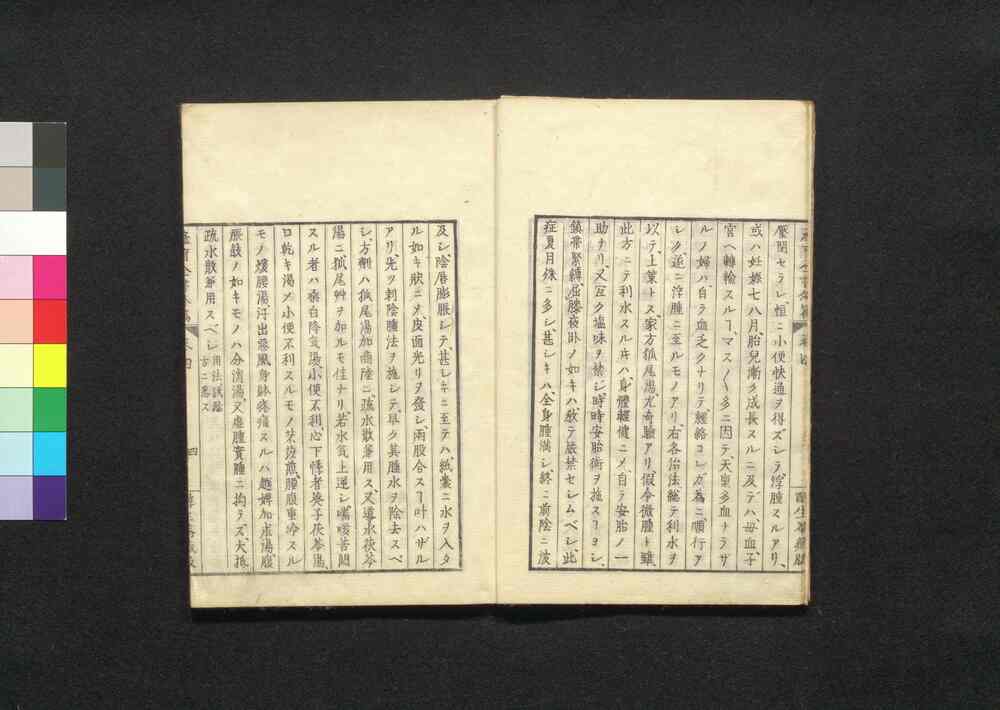 壓閉セラレ、恒ニ小便快通ヲ得ズシテ、浮腫スルアリ、
或ハ妊娠七八月、胎兒漸ク成長スルニ及デハ、母血子
宮ヘ轉輸スルヿ、マス〱多ニ因テ、天稟多血ナラザ
ルノ婦ハ自ラ血乏クナリテ、經絡コレガ為ニ順行ア
シク、遂ニ浮腫ニ至ルモノアリ、右各治法總テ利水ヲ
以テ、上葉トス、家方狐尾湯尤奇驗アリ、假令微腫ト雖、
此方ニテ利水スル片ハ、身體輕健ニメ、自ラ安胎ノ一
助ナリ、又宜ク塩味ヲ禁シ、時時安胎術ヲ施スヿヨシ、
鎮帯緊縛、屈膝夜卧ノ如キハ、敢テ嚴禁セシムベシ、此
症夏月殊ニ多シ、甚シキハ全身腫滿シ、終ニ前陰ニ波
及シ、陰唇膨脹シテ、甚シキニ至テハ、紙囊ニ水ヲ入タ
ル如キ狀ニメ、皮面光リヲ發シ、兩股合スヿ叶ハザル
アリ、先ツ刺陰腫法ヲ施シテ、早ク其腫水ヲ除去スベ
シ、方劑ハ狐尾湯加商陸ニ、疏水散兼用ス、又導水茯苓
湯ニ狐尾艸ヲ加ルモ佳ナリ、若水気上逆シ、喘咳苦悶
スルノ者ハ桑白降気湯、小便不利、心下悸者葵子茯苓湯、
口乾キ湯メ小便不利スルモノ、腰腹重冷スル
モノ、腰湯、汗出惡風身躰疼痛スルハ越婢加朮湯、腹
脹皷ノ如キモノハ分消湯、又虚腫實腫ニ拘ラズ、大抵
疏水散兼用スベシ、
四